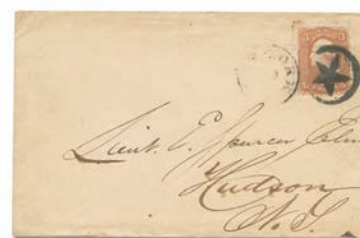 Lieut. E. Spencer Elm
Hudson
N. Y.